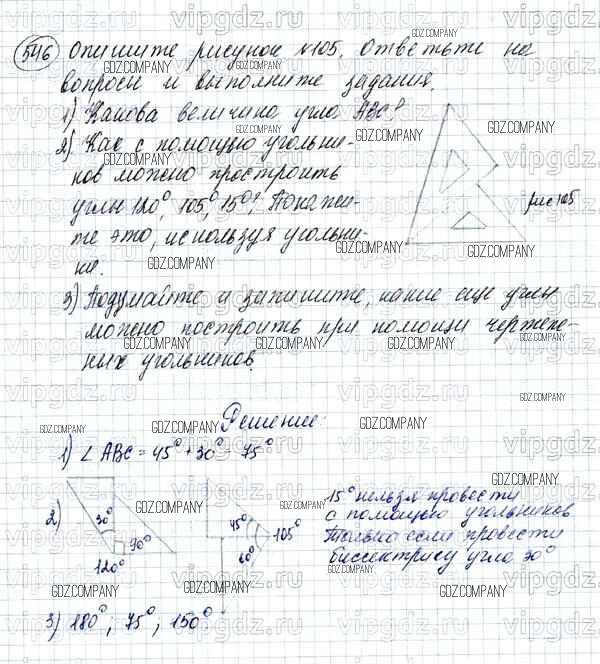 546 Опишите рисунок №105. Ответьте на
вопросы и выполните задания.
1) Какова величина угла ABC?
2) Как с помощью угольни-
ков можно простроить
углы 120°, 105°, 15°? Покажи-
те это, используя угольни-
ки.
рис 105
3) Подумайте и запишите, какие еще углы
можно построить при помощи чертеж-
ных угольников.
Решение:
1) ∠ ABC = 45° + 30° = 75°
2)
30°
90°
120°
45°
60°
105°
15° нельзя провести
с помощью угольников
Только если провести
биссектрису угла 30°
3) 180°; 75°; 150°
vipgdz.ru
GDZ.COMPANY